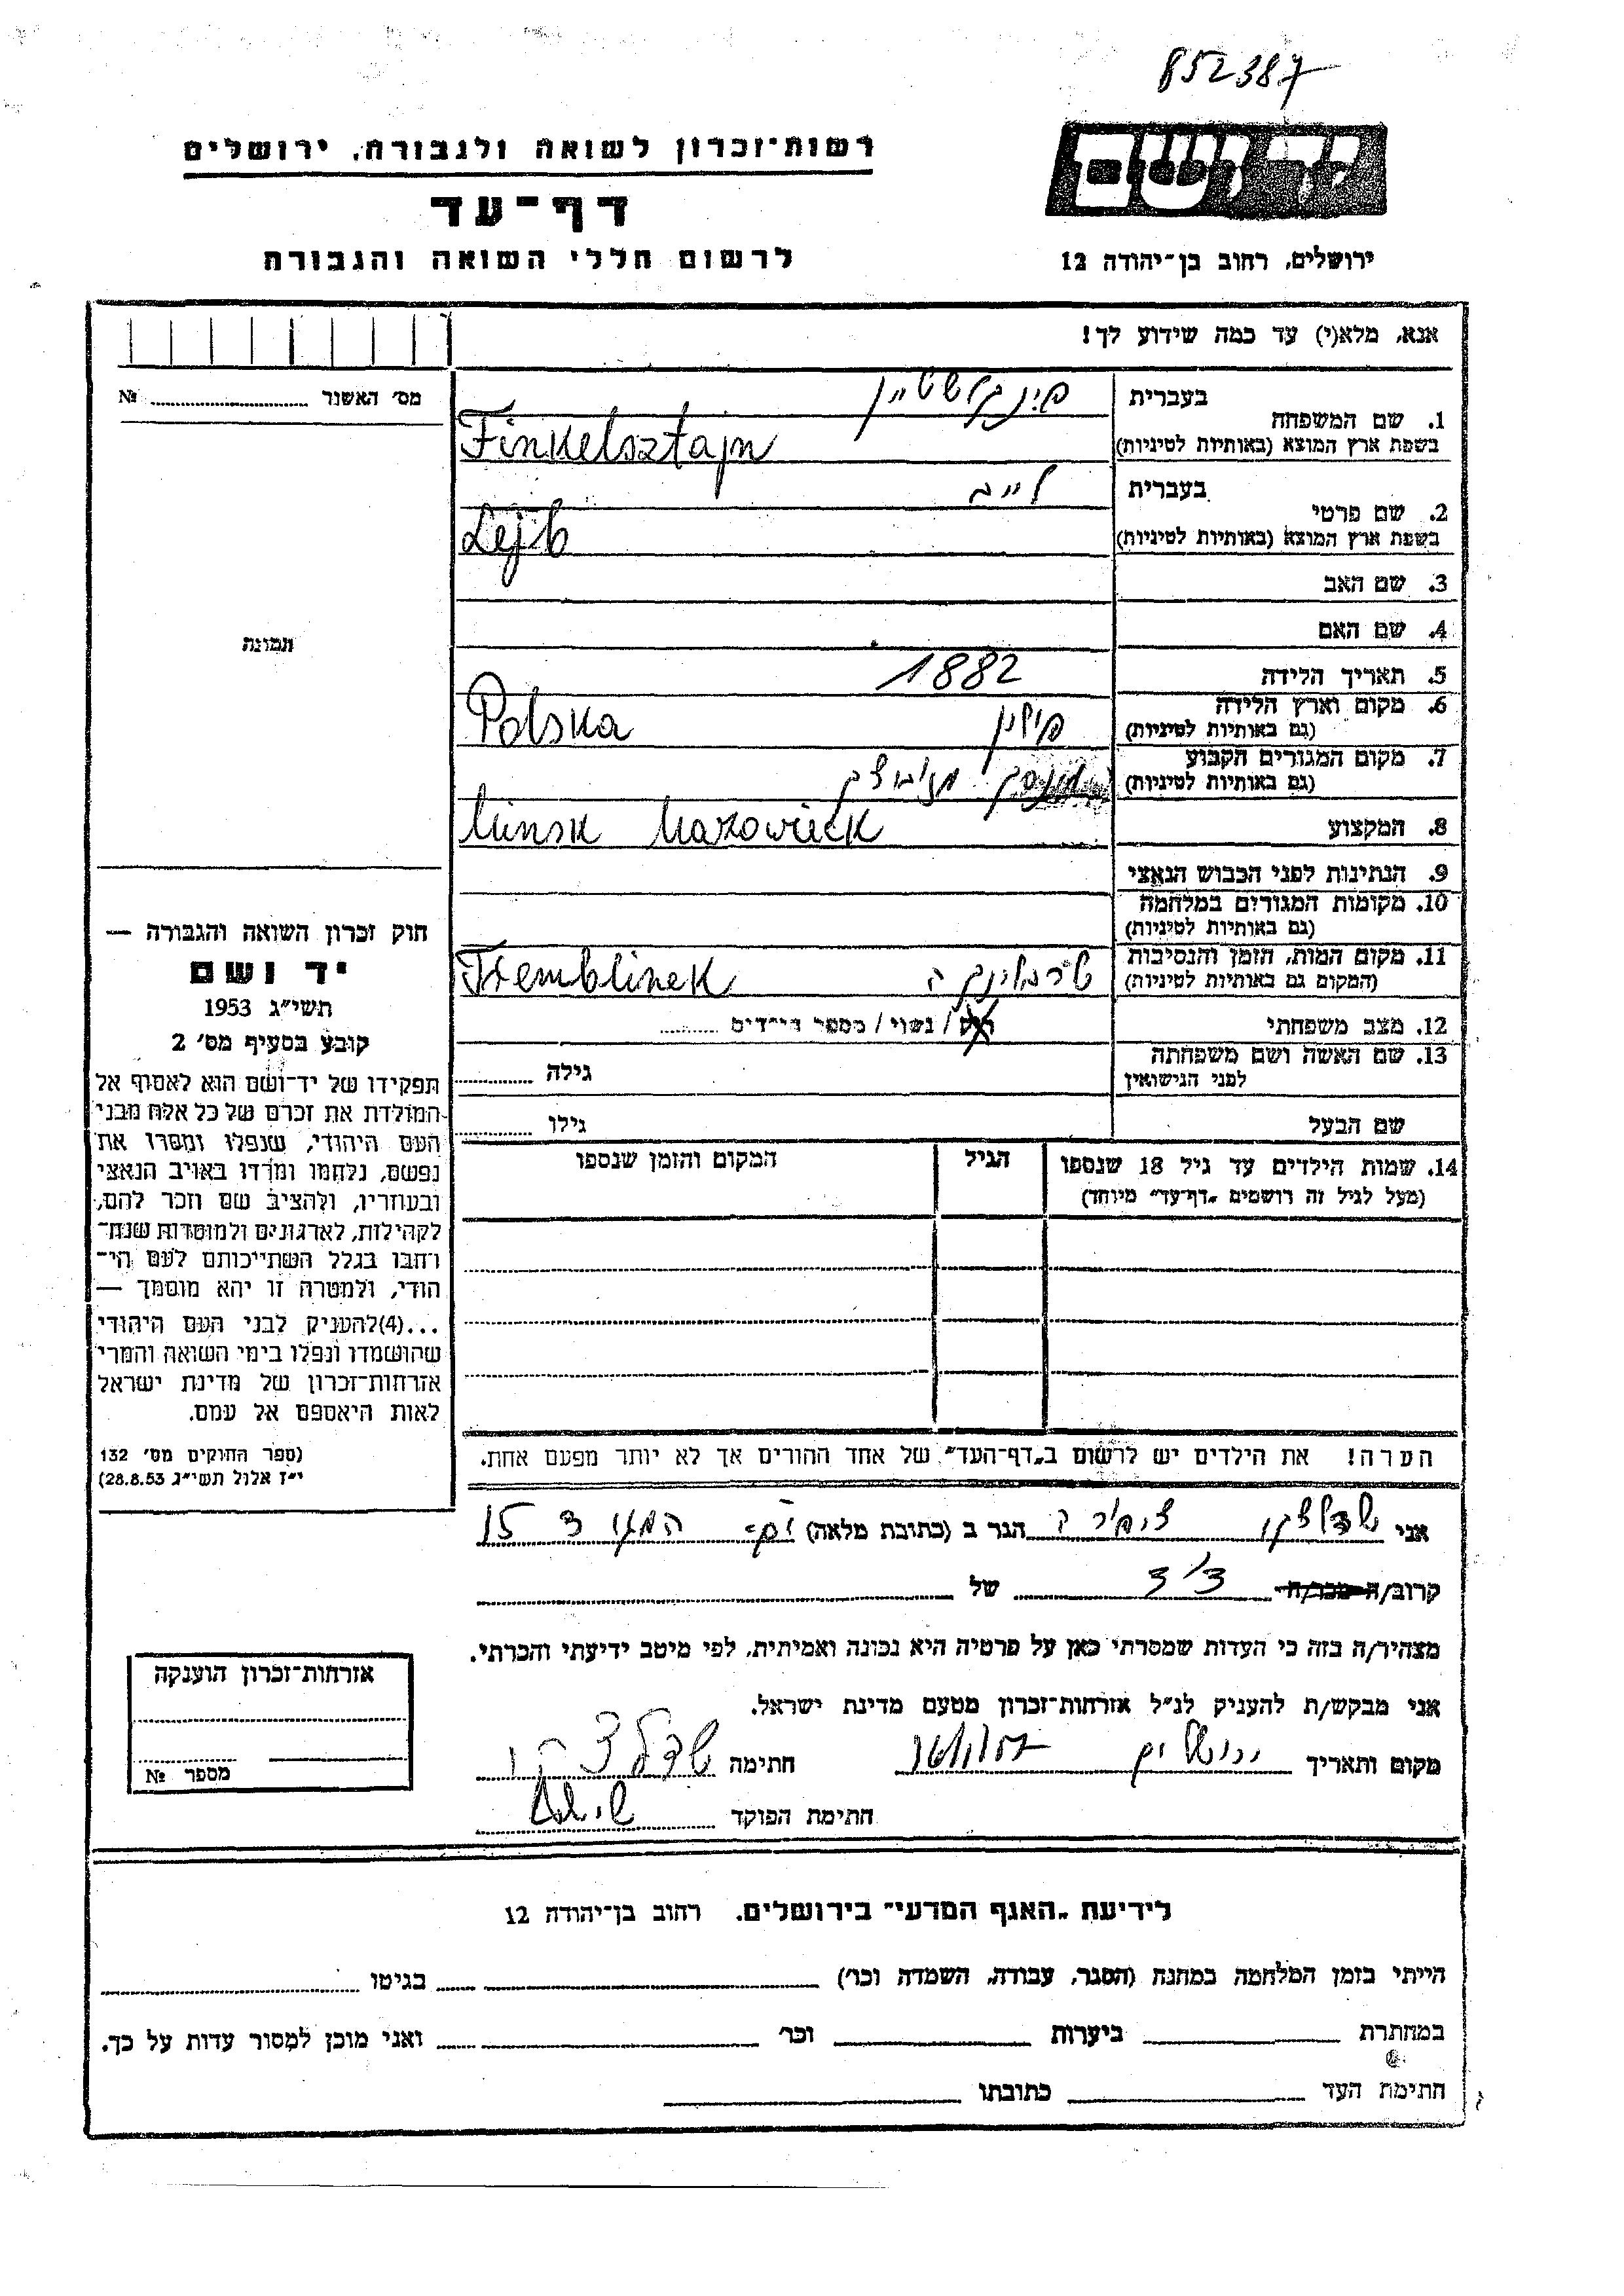 852387
יד ושם
רשות-זכרון לשואה ולגבורה, ירושלים
דף-עד
לרשום חללי השואה והגבורה
ירושלים, רחוב בן-יהודה 12
אנא, מלא(י) עד כמה שידוע לך!
מס׳ האשנר № ..........
1. שם המשפחה
בעברית פינקלשטיין
בשפת ארץ המוצא (באותיות לטיניות) Finkelsztajn
2. שם פרטי
בעברית לייב
בשפת ארץ המוצא (באותיות לטיניות) Lejb
3. שם האב
4. שם האם
5. תאריך הלידה 1882
6. מקום וארץ הלידה
(גם באותיות לטיניות) פולין Polska
7. מקום המגורים הקבוע
(גם באותיות לטיניות) מינסק מזובצק
8. המקצוע Minsk Mazowieck
9. הנתינות לפני הכבוש הנאצי
10. מקומות המגורים במלחמה
(גם באותיות לטיניות)
11. מקום המות, הזמן והנסיבות
(המקום גם באותיות לטיניות) טרבלינקה Tremblinek
12. מצב משפחתי רוק / נשוי / מספר הילדים ........
13. שם האשה ושם משפחתה
לפני הנישואין גילה ..........
שם הבעל גילו ..........
14. שמות הילדים עד גיל 18 שנספו
(מעל לגיל זה רושמים „דף-עד” מיוחד)
הגיל
המקום והזמן שנספו
הערה! את הילדים יש לרשום ב„דף-העד” של אחד ההורים אך לא יותר מפעם אחת.
תמונה
חוק זכרון השואה והגבורה —
יד ושם
תשי״ג 1953
קובע בסעיף מס׳ 2
תפקידו של יד-ושם הוא לאסוף אל
המולדת את זכרם של כל אלה מבני
העם היהודי, שנפלו ומסרו את
נפשם, נלחמו ומרדו באויב הנאצי
ובעוזריו, ולהציב שם וזכר להם,
לקהילות, לארגונים ולמוסדות שנח-
רבו בגלל השתייכותם לעם הי-
הודי, ולמטרה זו יהא מוסמך —
...(4)להעניק לבני העם היהודי
שהושמדו ונפלו בימי השואה והמרי
אזרחות-זכרון של מדינת ישראל
לאות היאספם אל עמם.
(ספר החוקים מס׳ 132
י״ז אלול תשי״ג 28.8.53)
אני ציפורה הגר ב (כתובת מלאה) 15
קרוב/ה מכר/ה של
מצהיר/ה בזה כי העדות שמסרתי כאן על פרטיה היא נכונה ואמיתית, לפי מיטב ידיעתי והכרתי.
אני מבקש/ת להעניק לנ״ל אזרחות-זכרון מטעם מדינת ישראל.
מקום ותאריך ירושלים חתימה
חתימת הפוקד
אזרחות-זכרון הוענקה
מספר №
לידיעת „האגף המדעי” בירושלים, רחוב בן-יהודה 12
הייתי בזמן המלחמה במחנה (הסגר, עבודה, השמדה וכר׳) בגיטו
במחתרת ביערות וכר׳ ואני מוכן למסור עדות על כך.
חתימת העד כתובתו